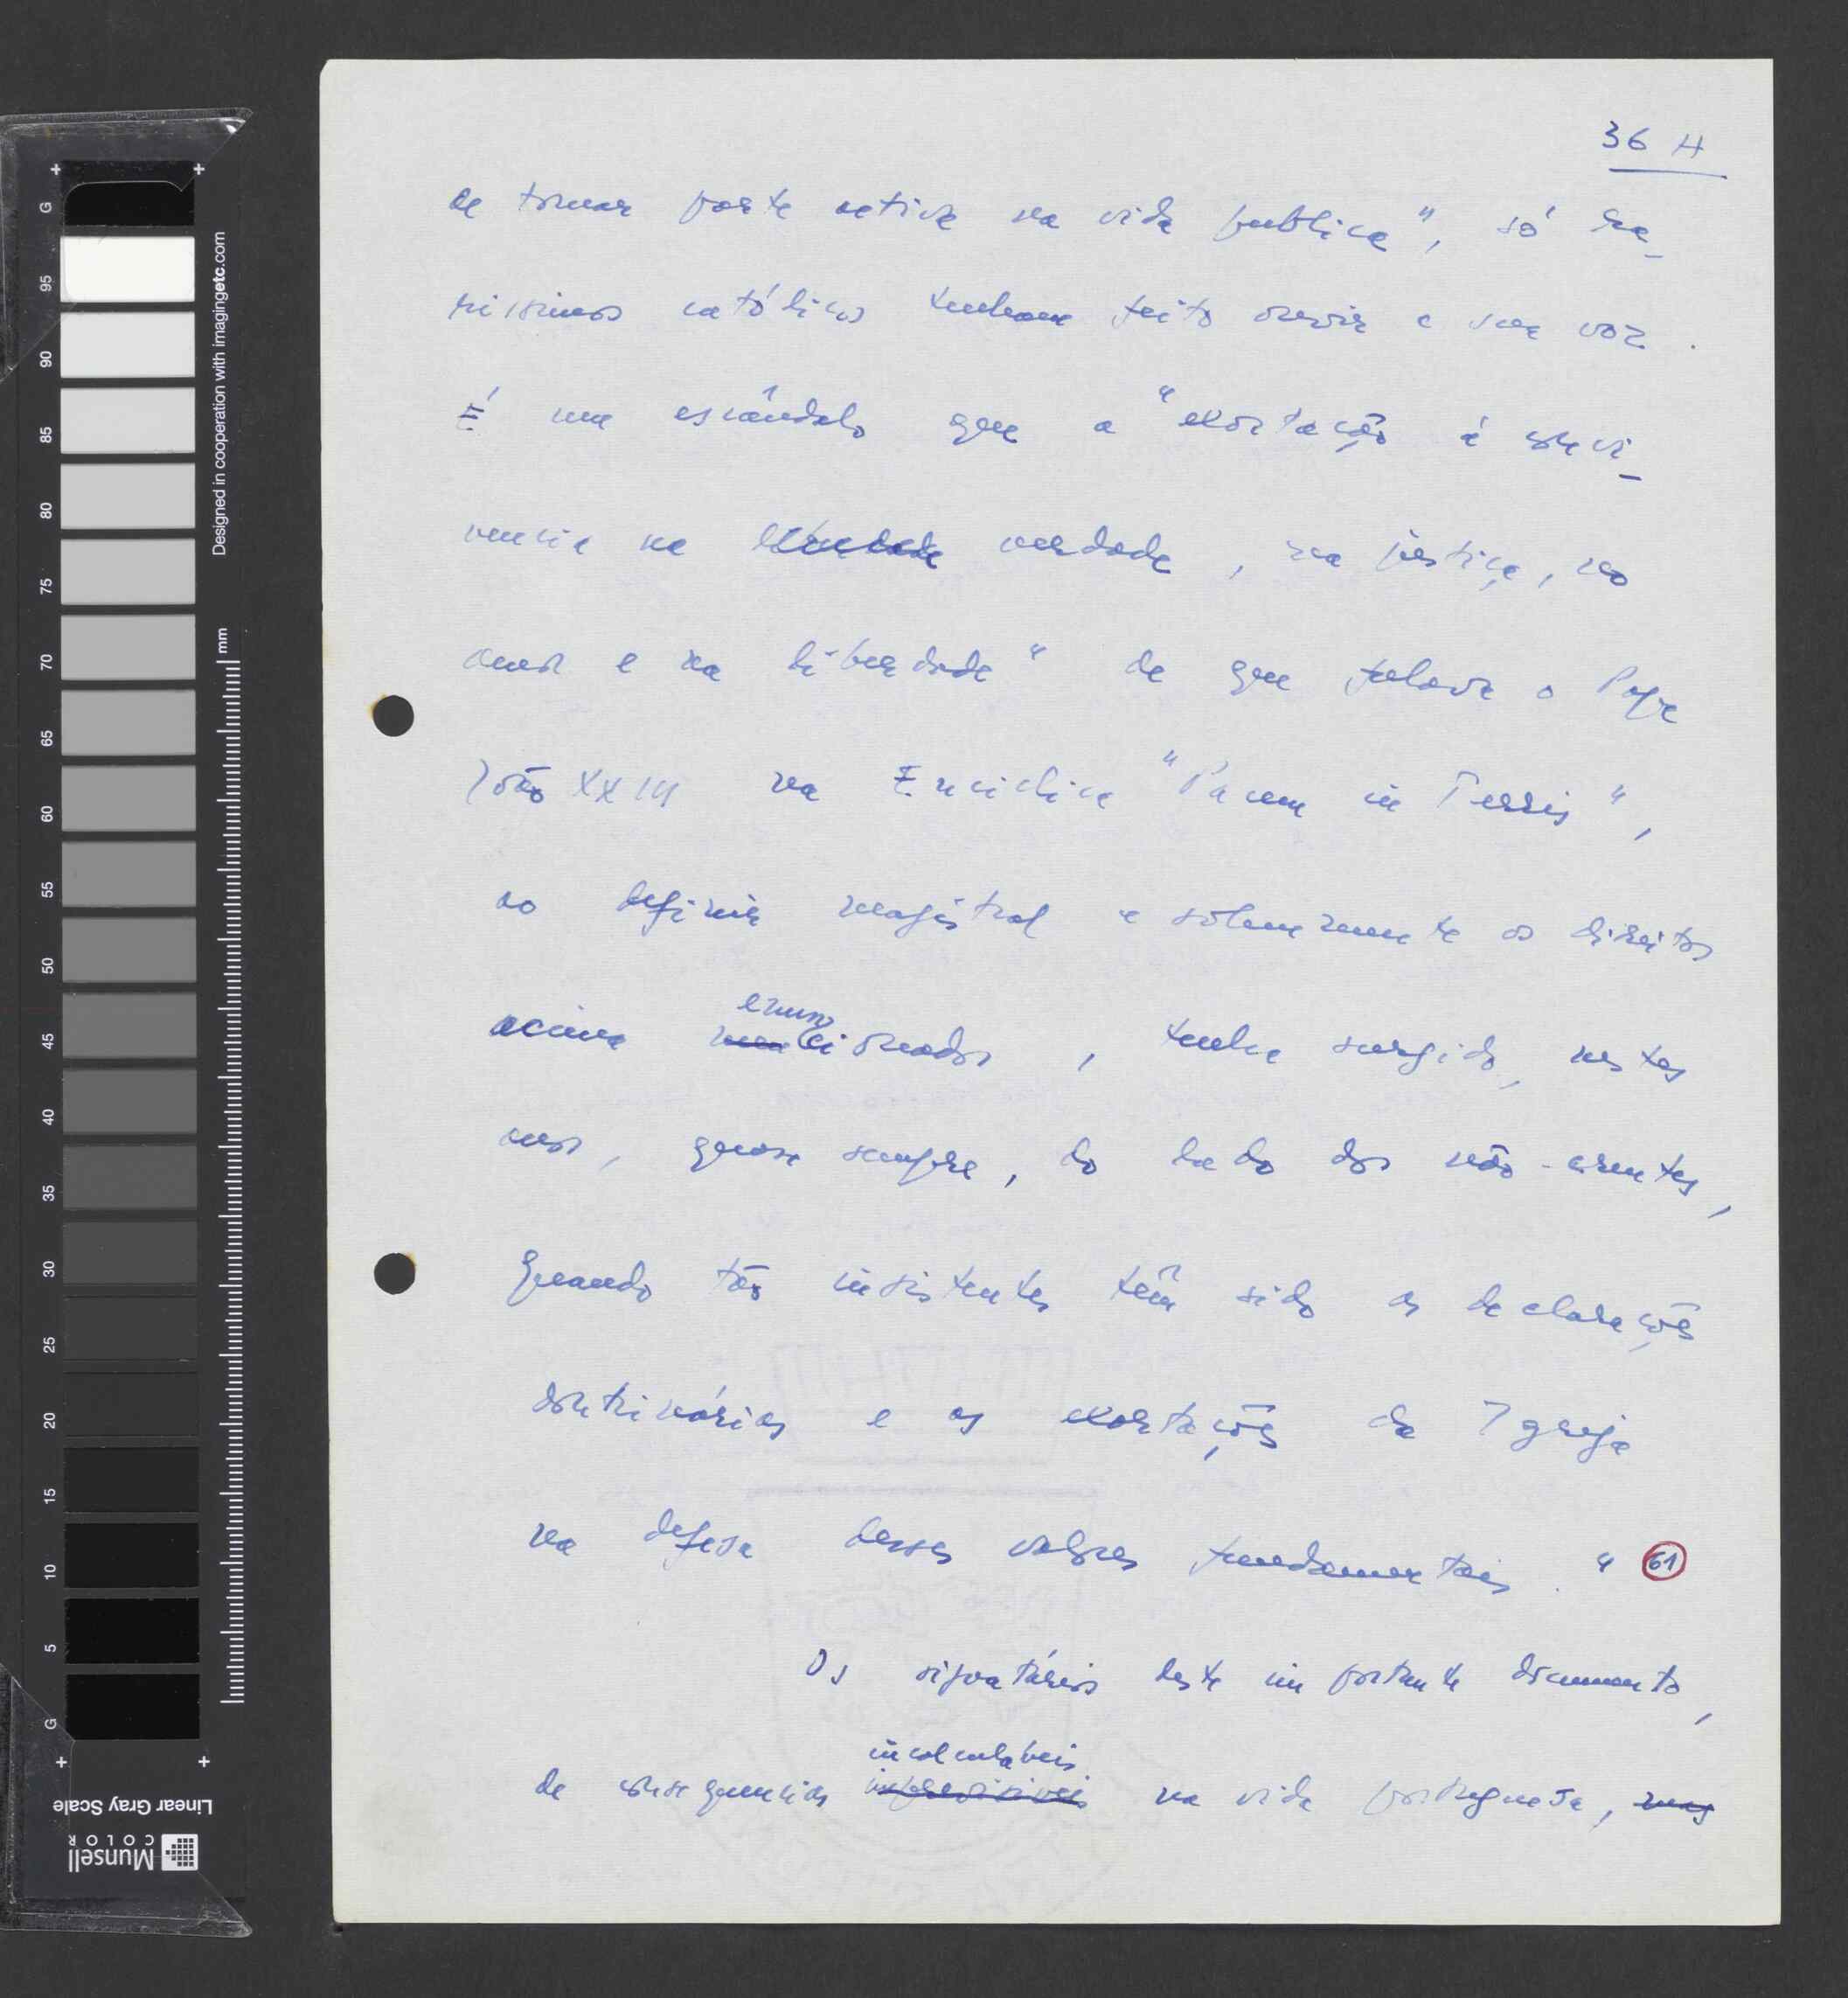 36 H
de tomar parte activa na vida publica", só ra-
rissimos católicos tenham feito ouvir a sua voz.
É um escândalo que a "exortação á convi-
vencia na verdade, na justiça, no
amor e na liberdade" de que falava o Papa
João XXIII na Enciclica "Pacem in Terris",
ao definir magistral e solenemente os direitos
acima men enuncionados, tenha surgido, nestes
anos, quase sempre, do lado dos não-crentes,
quando tão insistentes têm sido as declarações
doutrinárias e as exortações da Igreja
na defesa desses valores fundamentais." 61
Os signatários deste importante documento,
de consequencias imprevisiveis incalculabeis na vida portuguesa, mas
Designed in cooperation with imagingetc.com
mm
G 95 90 85 80 75 70 65 60 55 50 45 40 35 30 25 20 15 10 5 G
Linear Gray Scale
Munsell
COLOR